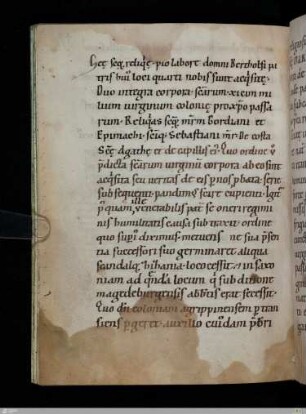 Hęc seq̄ reliq̄ę pio labore domni Bertholfi pa
tris huī loci quarti nobis sunt aeq̄sitę.
Duo integra corpora scārum xi cum mi
lium virginum colonię pro xp̄o passa
rum. Reliq̄as scī mr̄m Gordiani et
Epimachi. Scīq; Sebastiani mr̄. De costa
Scę̄ Agathę et de capillis ei. Quo ordine
p̄dicta scārum virginū corpora ab eo sint
aeq̄sita seu veritas de eis p̄nos p̄bata. serie
subsequenti pandim; scire cupienti.
p̄quam ille venerabilis pat̄ se oneri regimi
nis humilitatis causa subtraxit. ordine
quo supi dixim; metuens ne sua p̄sen
tia successori suo germinaret aliqua
scandala; hi loco cessit. in saxo
niam ad q̄ndā locum q̄ sub ditione
magedeburgensis abbīs erat secessit.
Quo dū coloniam agrippinensem p̄tran
siens p̄geret auxilio cuidam p̄br̄i